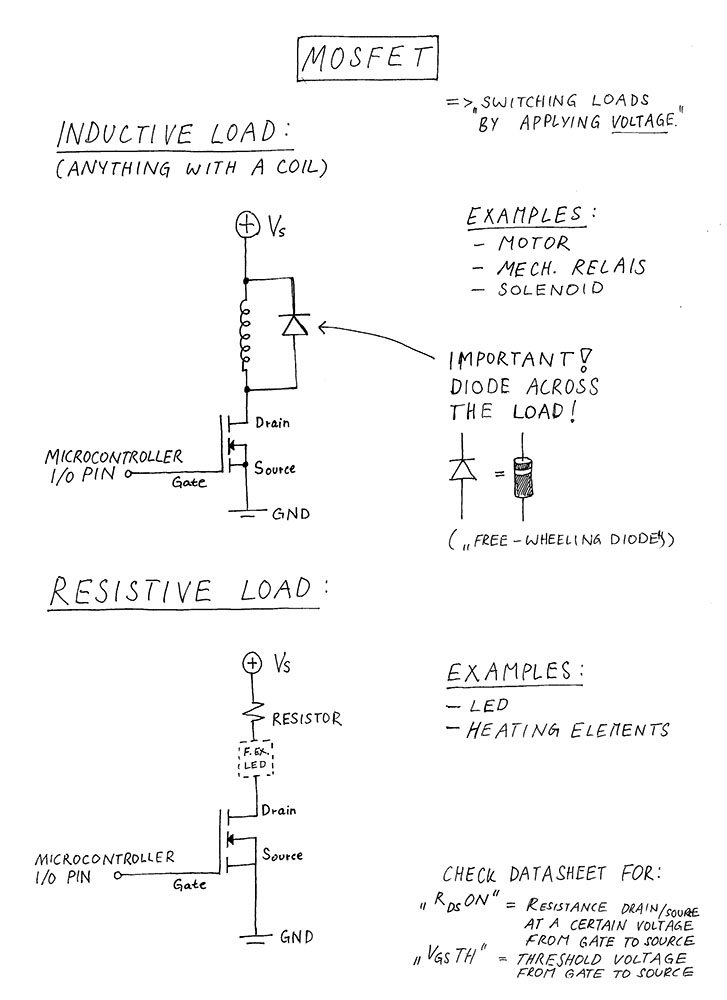 MOSFET
=> „SWITCHING LOADS
BY APPLYING VOLTAGE."
INDUCTIVE LOAD:
(ANYTHING WITH A COIL)
Vs
EXAMPLES:
- MOTOR
- MECH. RELAIS
- SOLENOID
IMPORTANT!
DIODE ACROSS
THE LOAD!
Drain
MICROCONTROLLER
I/O PIN
Gate
Source
=
GND
(„FREE-WHEELING DIODES")
RESISTIVE LOAD:
Vs
RESISTOR
F. EX.
LED
EXAMPLES:
- LED
- HEATING ELEMENTS
Drain
MICROCONTROLLER
I/O PIN
Gate
Source
GND
CHECK DATASHEET FOR:
„RDS ON" = RESISTANCE DRAIN/SOURE
AT A CERTAIN VOLTAGE
FROM GATE TO SOURCE
„VGS TH" = THRESHOLD VOLTAGE
FROM GATE TO SOURCE